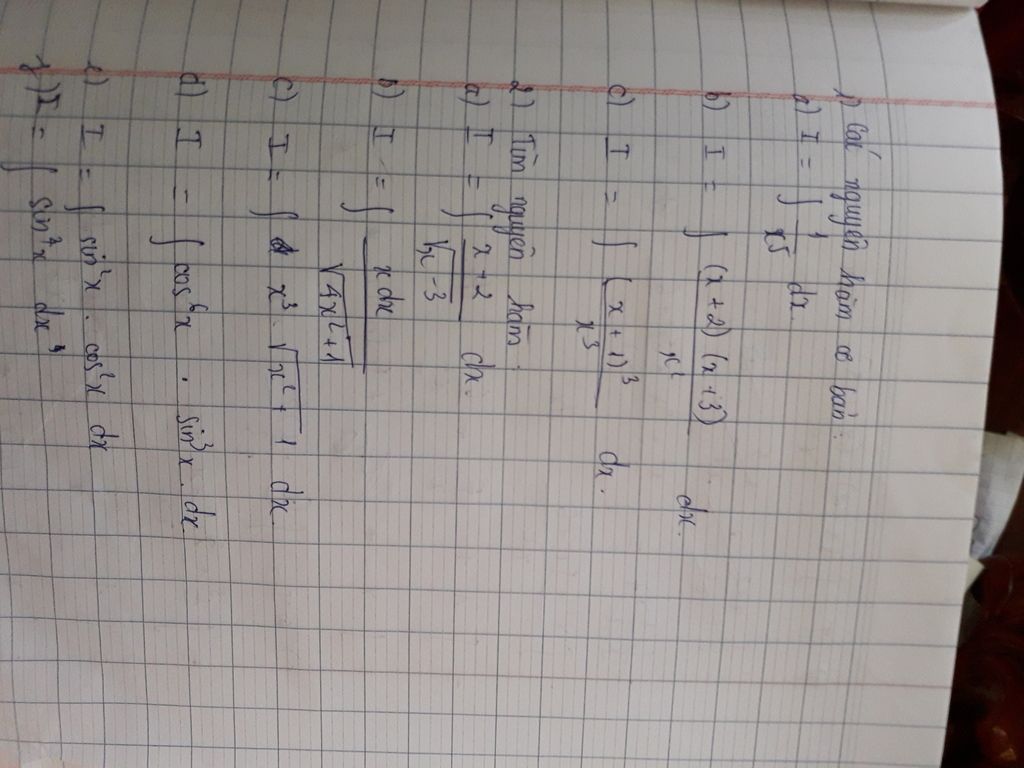 1) Các nguyên hàm cơ bản:
a) I = ∫ 1/x⁵ dx.
b) I = ∫ (x+2)(x+3)/x² dx.
c) I = ∫ (x+1)³/x³ dx.
2) Tìm nguyên hàm:
a) I = ∫ x+2/√x-3 dx.
b) I = ∫ xdx/√4x²+1
c) I = ∫ x³. √x²+1 dx.
d) I = ∫ cos⁶x . sin³x. dx
e) I = ∫ sin²x. cos²x dx
f) I = ∫ sin⁷x dx